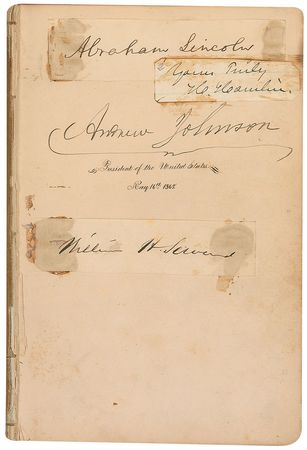 Abraham Lincoln
Yours Truly
H. Hamlin
Andrew Johnson
President of the United States
May 16th 1865
William H Seward